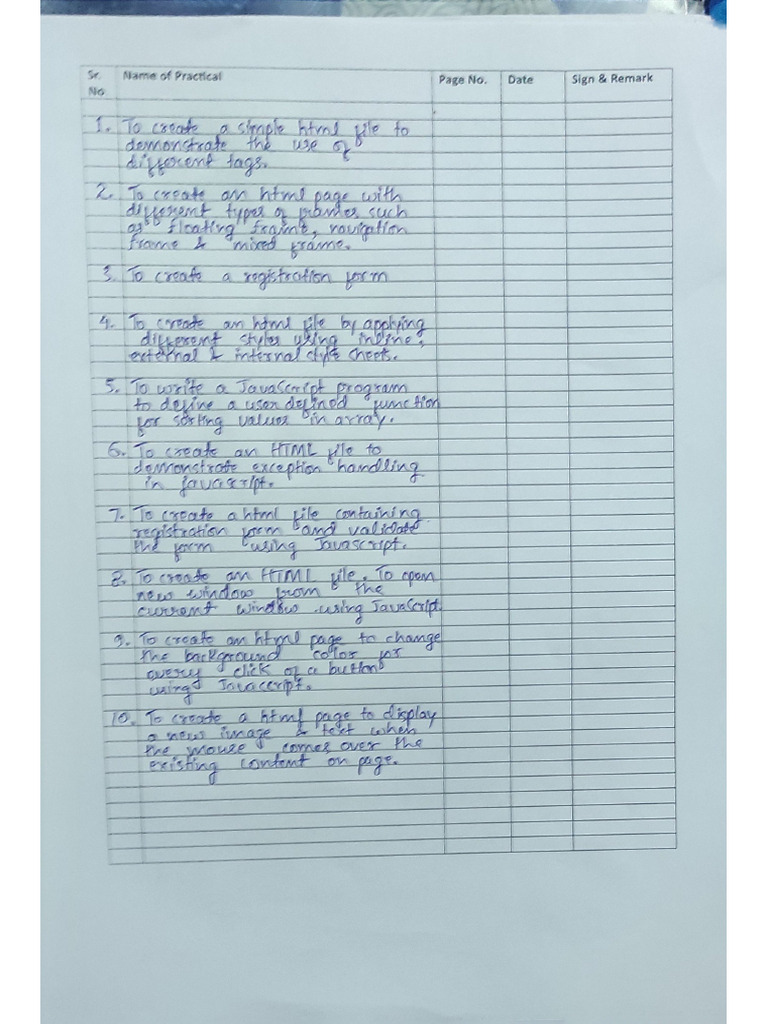 Sr. No
Name of Practical
Page No.
Date
Sign & Remark
1. To create a simple html file to
demonstrate the use of
different tags.
2. To create an html page with
different types of frames such
as floating frame, navigation
frame & mixed frame.
3. To create a registration form
4. To create an html file by applying
different styles using inline,
external & internal style sheets.
5. To write a JavaScript program
to define a user defined function
for sorting values in array.
6. To create an HTML file to
demonstrate exception handling
in javascript.
7. To create a html file containing
registration form and validate
the form using Javascript.
8. To create an HTML file. To open
new window from the
current window using JavaScript.
9. To create an html page to change
the background color for
every click of a button
using Javascript.
10. To create a html page to display
a new image & text when
the mouse comes over the
existing content on page.